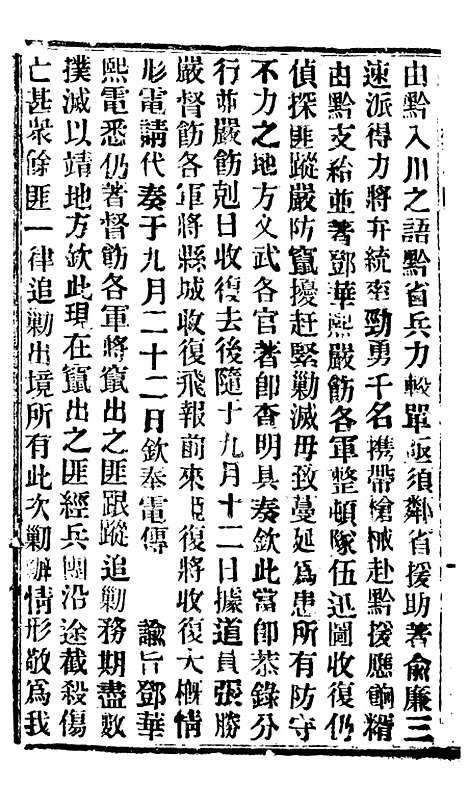 由黔入川之語黔省兵力較單亟須鄰省援助著俞廉三
速派得力將弁統率勁勇千名攜帶槍械赴黔援應餉糈
由黔支給並著鄧華熙嚴飭各軍整頓隊伍迅圖收復仍
偵探匪蹤嚴防竄擾赶緊勦滅毋致蔓延爲患所有防守
不力之地方文武各官著卽查明具奏欽此當卽恭錄分
行並嚴飭剋日收復去後隨于九月十二日據道員張勝
嚴督飭各軍將縣城收復飛報前來臣復將收復大概情
形電請代奏于九月二十二日欽奉電傳　諭旨鄧華
熙電悉仍著督飭各軍將竄出之匪跟蹤追勦務期盡數
撲滅以靖地方欽此現在竄出之匪經兵團沿途截殺傷
亡甚衆餘匪一律追勦出境所有此次勦辦情形敬爲我